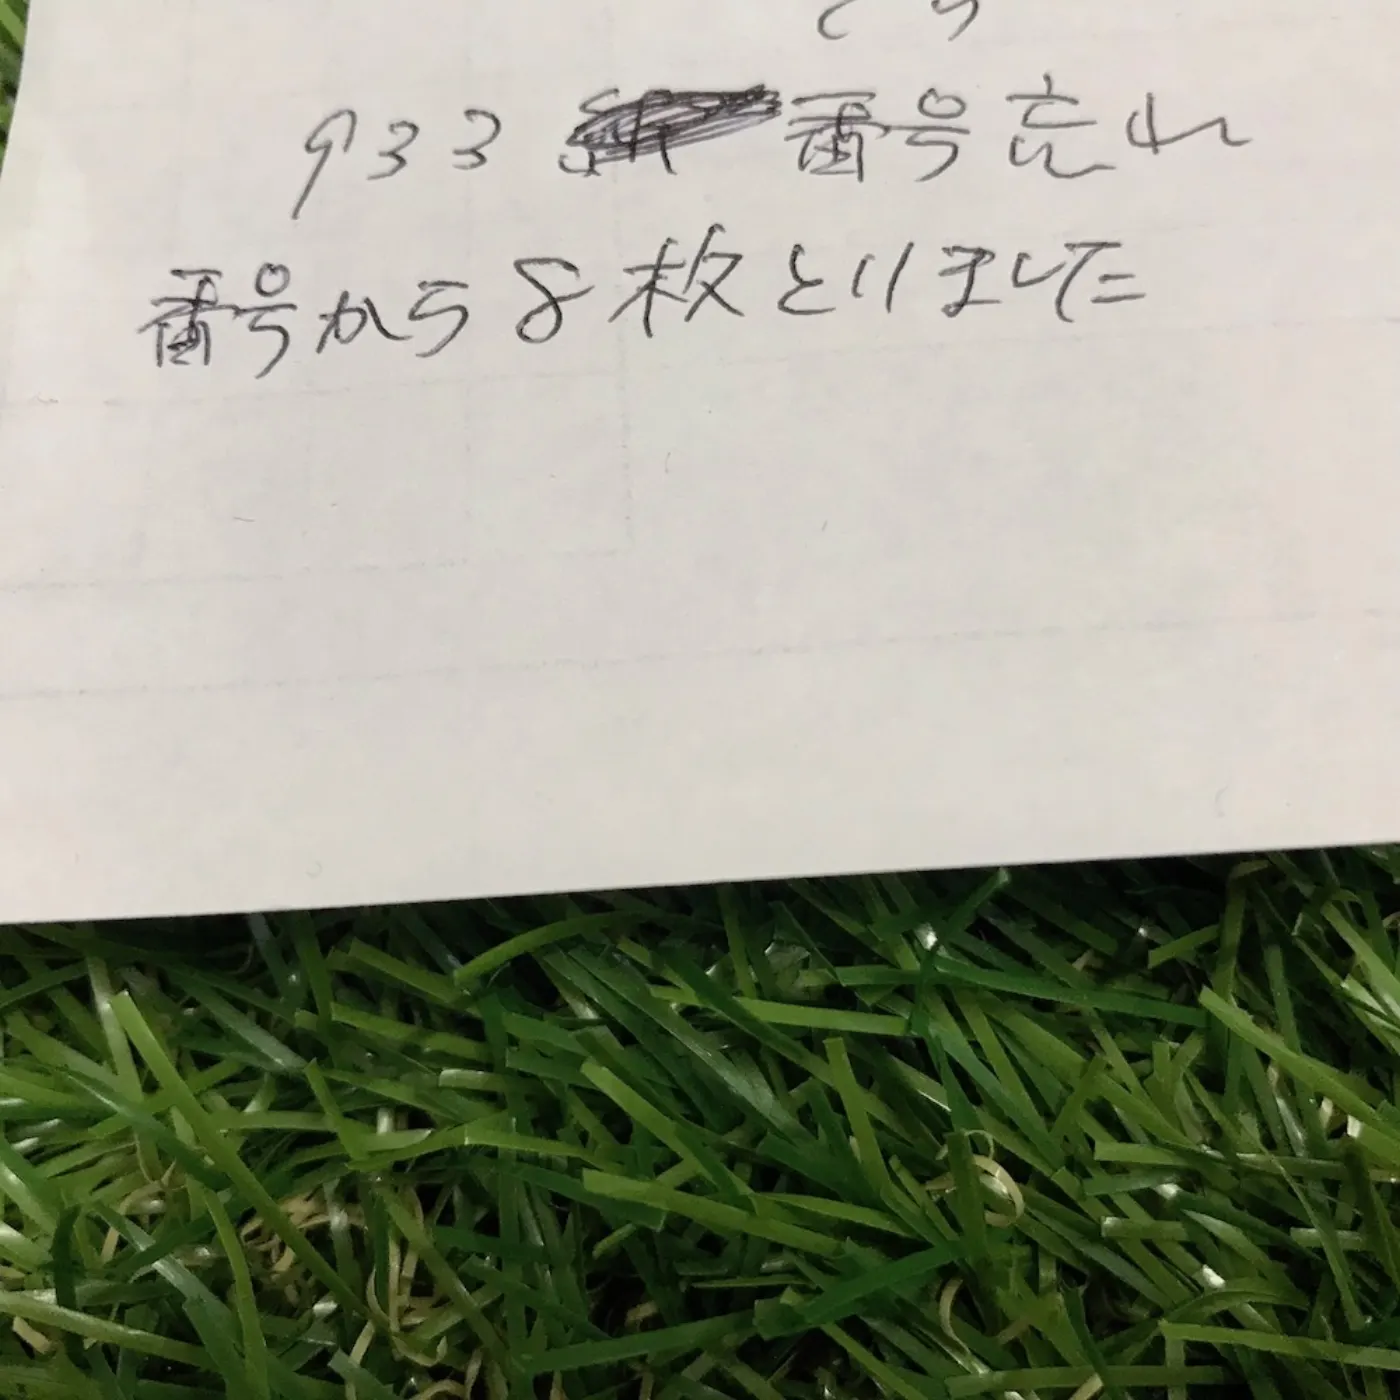 933 番号忘れ
番号から8枚とりました